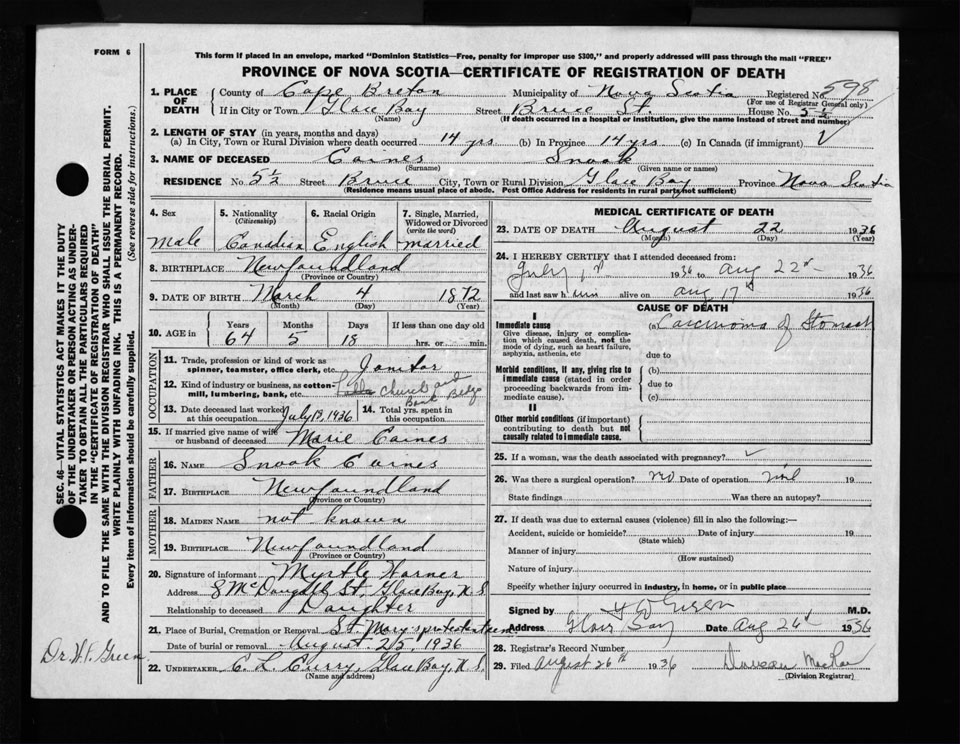 FORM 6
This form if placed in an envelope, marked "Dominion Statistics—Free, penalty for improper use $300," and properly addressed will pass through the mail "FREE"
PROVINCE OF NOVA SCOTIA—CERTIFICATE OF REGISTRATION OF DEATH
1. PLACE OF DEATH County of Cape Breton Municipality of Nova Scotia Registered No. 598
(For use of Registrar General only)
If in City or Town Glace Bay Street Bruce St. House No. 5½
(Name) (If death occurred in a hospital or institution, give the name instead of street and number)
2. LENGTH OF STAY (in years, months and days)
(a) In City, Town or Rural Division where death occurred 14 yrs (b) In Province 14 yrs (c) In Canada (if immigrant)
3. NAME OF DECEASED Caines Snook
(Surname) (Given name or names)
RESIDENCE No 5½ Street Bruce City, Town or Rural Division Glace Bay Province Nova Scotia
(Residence means usual place of abode. Post Office Address for residents in rural parts not sufficient)
4. Sex 5. Nationality (Citizenship) 6. Racial Origin 7. Single, Married, Widowed or Divorced (write the word)
Male Canadian English married
8. BIRTHPLACE Newfoundland
(Province or Country)
9. DATE OF BIRTH March 4 1872
(Month) (Day) (Year)
10. AGE in Years Months Days If less than one day old
64 5 18 hrs. or min.
OCCUPATION
11. Trade, profession or kind of work as spinner, teamster, office clerk, etc. Janitor
12. Kind of industry or business, as cotton-mill, lumbering, bank, etc. Church and Bank Bldg
13. Date deceased last worked at this occupation July 13, 1936 14. Total yrs. spent in this occupation
15. If married give name of wife or husband of deceased Marie Caines
FATHER
16. NAME Snook Caines
17. BIRTHPLACE Newfoundland
(Province or Country)
MOTHER
18. MAIDEN NAME not known
19. BIRTHPLACE Newfoundland
(Province or Country)
20. Signature of informant Myrtle Warner
Address 8 McDougall St, Glace Bay, N.S.
Relationship to deceased Daughter
21. Place of Burial, Cremation or Removal St. Marys protestant cem
Date of burial or removal August 25, 1936
22. UNDERTAKER C. L. Curry, Glace Bay, N.S.
(Name and address)
MEDICAL CERTIFICATE OF DEATH
23. DATE OF DEATH August 22 1936
(Month) (Day) (Year)
24. I HEREBY CERTIFY that I attended deceased from:
July 1st 1936 to Aug 22nd 1936
and last saw him alive on Aug 17th 1936
CAUSE OF DEATH
I
Immediate cause (a) Carcinoma of Stomach
Give disease, injury or complication which caused death, not the mode of dying, such as heart failure, asphyxia, asthenia, etc
due to
Morbid conditions, if any, giving rise to immediate cause (stated in order proceeding backwards from immediate cause).
(b)
due to
(c)
II
Other morbid conditions (if important) contributing to death but not causally related to immediate cause.
25. If a woman, was the death associated with pregnancy?
26. Was there a surgical operation? no Date of operation nil 19
State findings Was there an autopsy?
27. If death was due to external causes (violence) fill in also the following:—
Accident, suicide or homicide? Date of injury 19
(State which)
Manner of injury
(How sustained)
Nature of injury
Specify whether injury occurred in industry, in home, or in public place
Signed by Green M.D.
Address Glace Bay Date Aug 24th 1936
28. Registrar's Record Number
29. Filed August 26th 1936 MacRae
(Division Registrar)
SEC. 46—VITAL STATISTICS ACT MAKES IT THE DUTY
OF THE UNDERTAKER OR PERSON ACTING AS UNDER-
TAKER TO OBTAIN ALL THE PARTICULARS REQUIRED
IN THE "CERTIFICATE OF REGISTRATION OF DEATH"
AND TO FILE THE SAME WITH THE DIVISION REGISTRAR WHO SHALL ISSUE THE BURIAL PERMIT.
WRITE PLAINLY WITH UNFADING INK. THIS IS A PERMANENT RECORD.
Every item of information should be carefully supplied. (See reverse side for instructions.)
Dr. W. F. Green